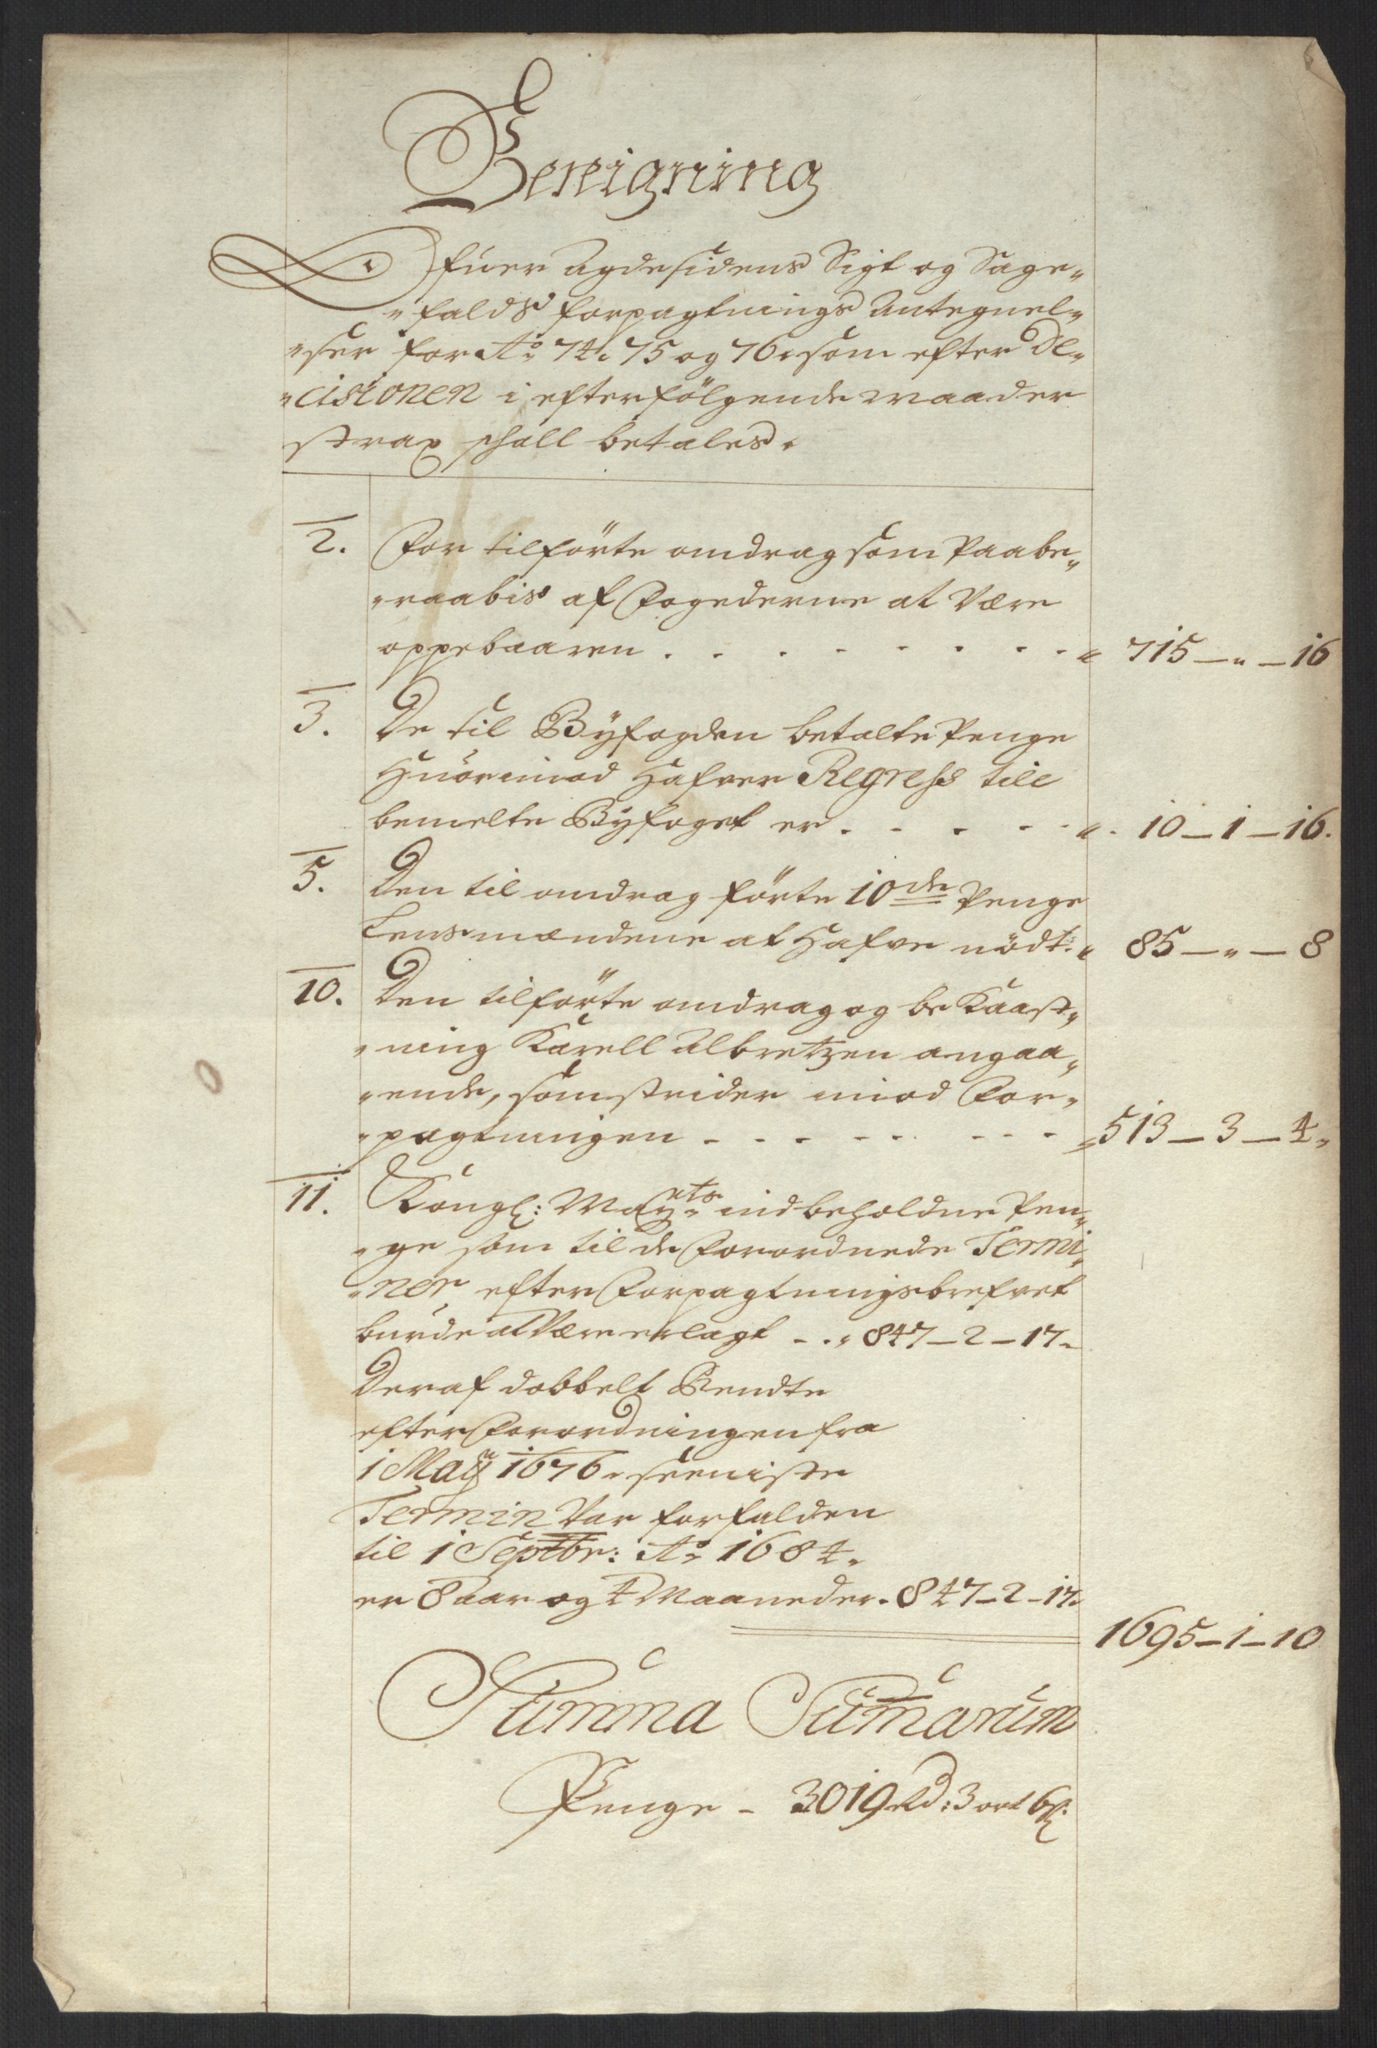 Bereigning
Ofuer Agdesidens Sigt og Sage-
-falds forpagtnings Antegnel-
-ser for Ao 74. 75 og 76. som efter De-
-cisionen i efterfölgende maader
strax schall betales.
2. For tilförte omdrag som Paabe-
-raabis af Fogederne at Være
oppebaaren . . . . . . . . " 715 — " — 16
3. De til Byfogden betalte Penge
Huorimod Hafver Regress till
bemelte Byfoget er . . . . . " 10 — 1 — 16.
5. Den til omdrag förte 10de Penge
Lensmændene at Hafve nödt: " 85 — " — 8
10. Den tilförte omdrag og be Kaast-
-ning Karell Albretzen angaa-
-ende, som strider imod For-
-pagtningen - - - - - - - " 513 — 3 — 4"
11. Kongl: Mayts indbeholdne Pen-
-ge som til de Forordnede Termi-
-ner efter Forpagtningsbrefvet
burde at Være erlagt - . " 847 — 2 — 17.
Deraf dobbelt Rendte
efter Forordningen fra
1 Maÿ 1676. seeniste
Termin Var forfalden
til 1 Septbr: Ao 1684.
er 8 aar og 4 Maaneder. 847 — 2 — 17.
1695 — 1 — 10
Summa Sumarum
Penge - 3019 Rd: 3 ort 6 s: